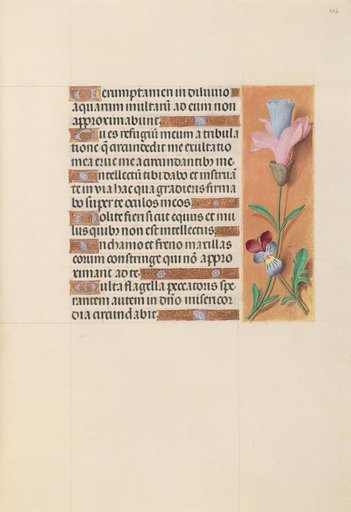 Verumptamen in diluvio
aquarum multarum ad eum non
approximabunt
Tu es refugium meum a tribula
tione que circumdedit me exultatio
mea erue me a circundantibus me.
Intellectum tibi dabo et instruam
te in via hac qua gradieris firma
bo super te oculos meos
Nolite fieri sicut equus et mu
lus quibus non est intellectus
In chamo et freno maxillas
eorum constringe qui non appro
ximant ad te
Multa flagella peccatoris spe
rantem autem in domino misericor
dia circundabit